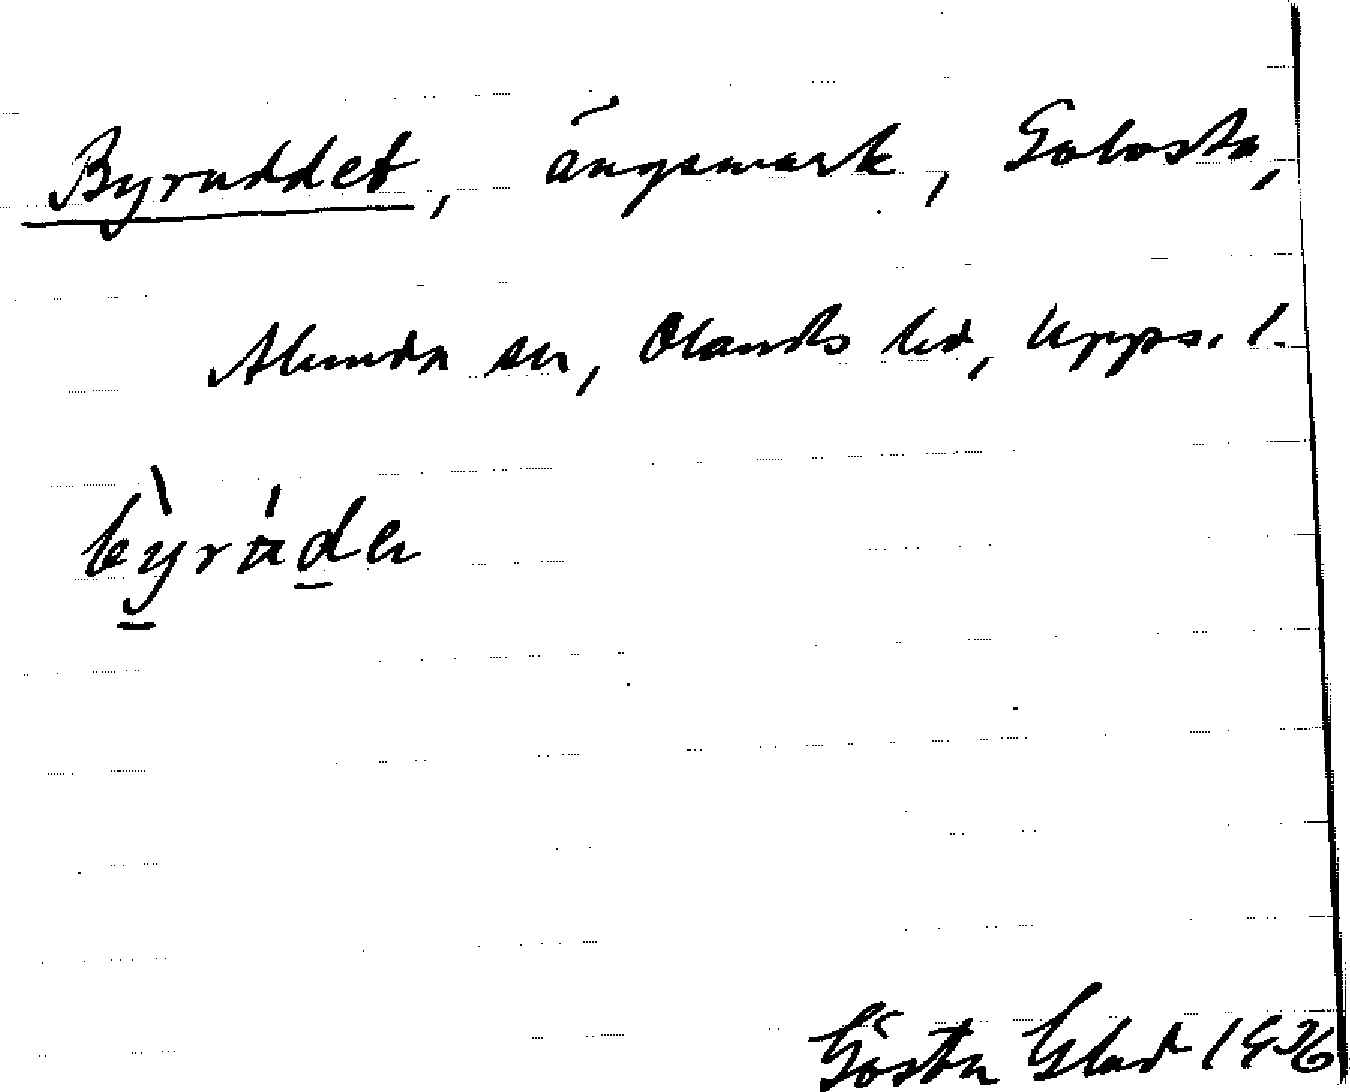 Byruddet, ängsmark, Golvsta,
Alunda sn, Olands hd, Upps. l.
bỳráde
Gösta Glad 1936